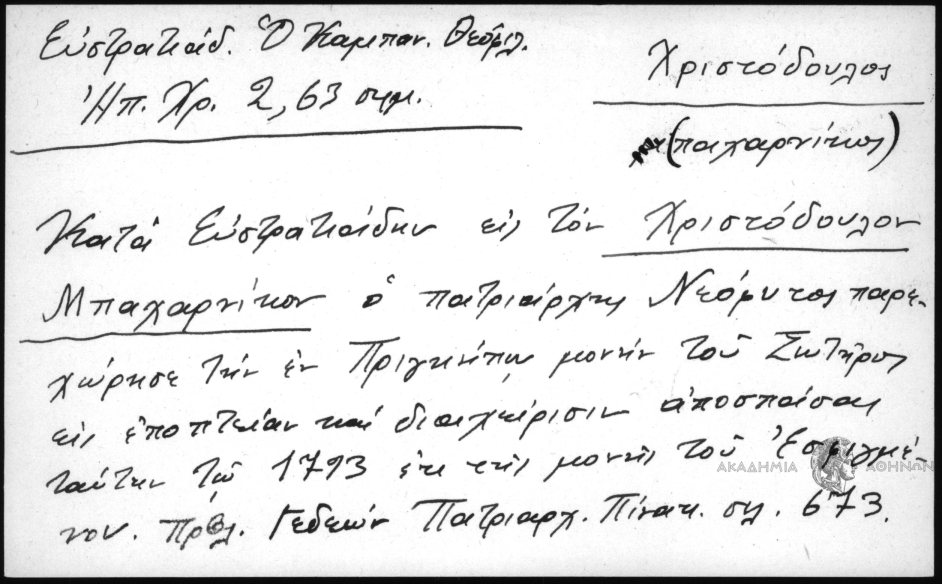 Εὐστρατιάδ. Ὁ Καμπαν. Θεόφιλ.
Ἠπ. Χρ. 2, 63 σημ.
Χριστόδουλος
(παχαρνίκος)
Κατὰ Εὐστρατιάδην εἰς τὸν Χριστόδουλον
Μπαχαρνίκον ὁ πατριάρχης Νεόφυτος παρε-
χώρησε τὴν ἐν Πριγκήπῳ μονὴν τοῦ Σωτῆρος
εἰς ἐποπτείαν καὶ διαχείρισιν ἀποσπάσας
ταύτην τῷ 1793 ἐκ τῆς μονῆς τοῦ Ἐσφιγμέ-
νου. Πρβλ. Γεδεὼν Πατριαρχ. Πίνακ. σελ. 673.
ΑΚΑΔΗΜΙΑ ΑΘΗΝΩΝ